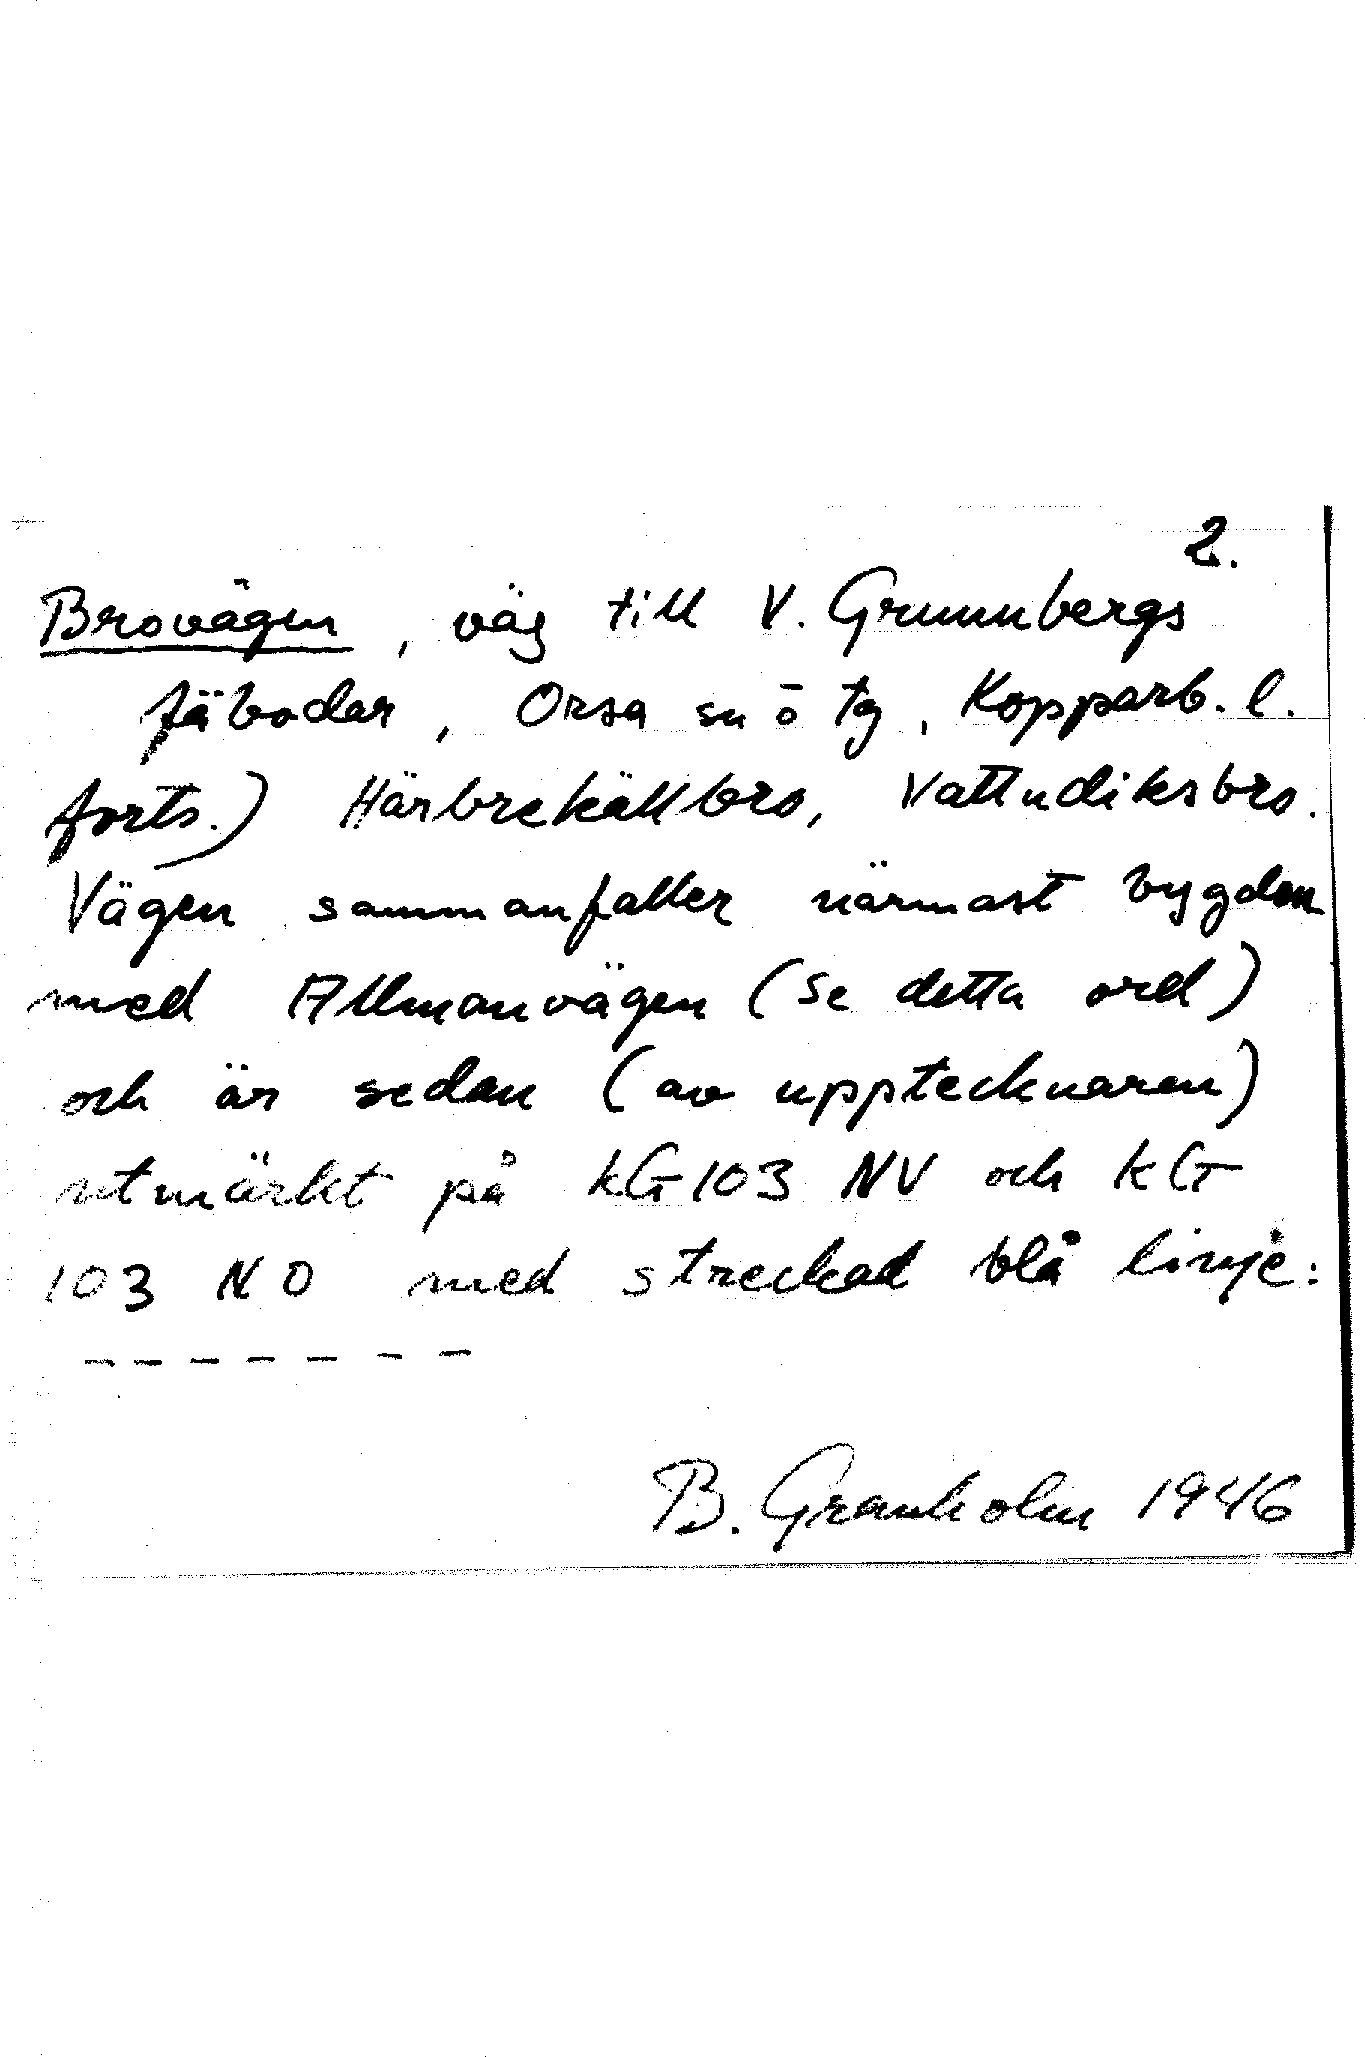 2.
Brovägen, väg till V. Grunubergs
fäbodar, Orsa sn ō tg, Kopparb. l.
forts.) Härbrekällbro, Vattudiksbro.
Vägen sammanfaller närmast bygden
med Allmanvägen (se detta ord)
och är sedan (av upptecknaren)
utmärkt på kG 103 NV och kG
103 NO med streckad blå linje:
- - - - - - -
B. Granholm 1946